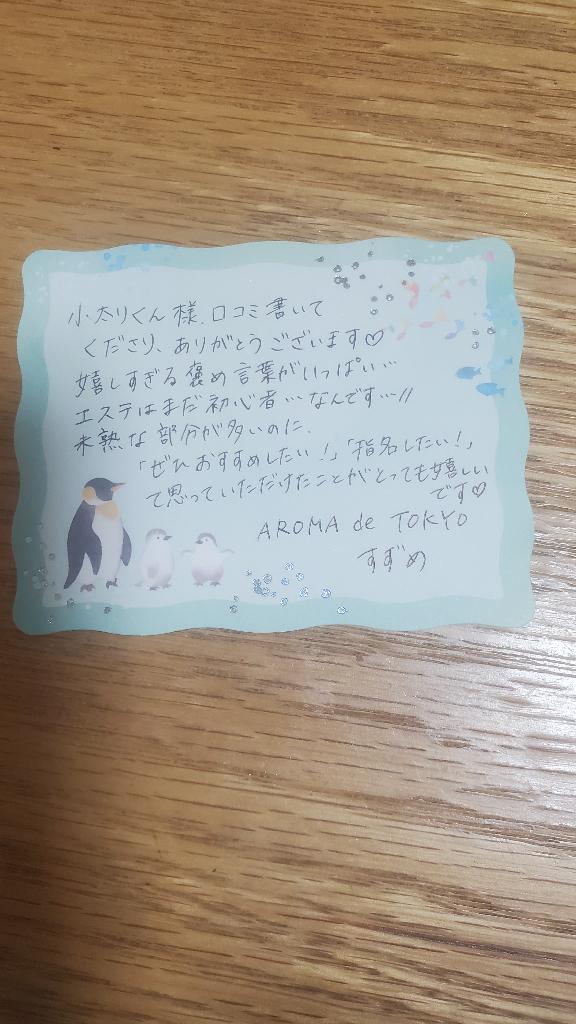 小太りくん様、口コミ書いて
くださり、ありがとうございます♡
嬉しすぎる褒め言葉がいっぱい…
エステはまだ初心者…なんです…//
未熟な部分が多いのに、
「ぜひおすすめしたい！」「指名したい！」
て思っていただけたことがとっても嬉しい
です♡
AROMA de TOKYO
すずめ